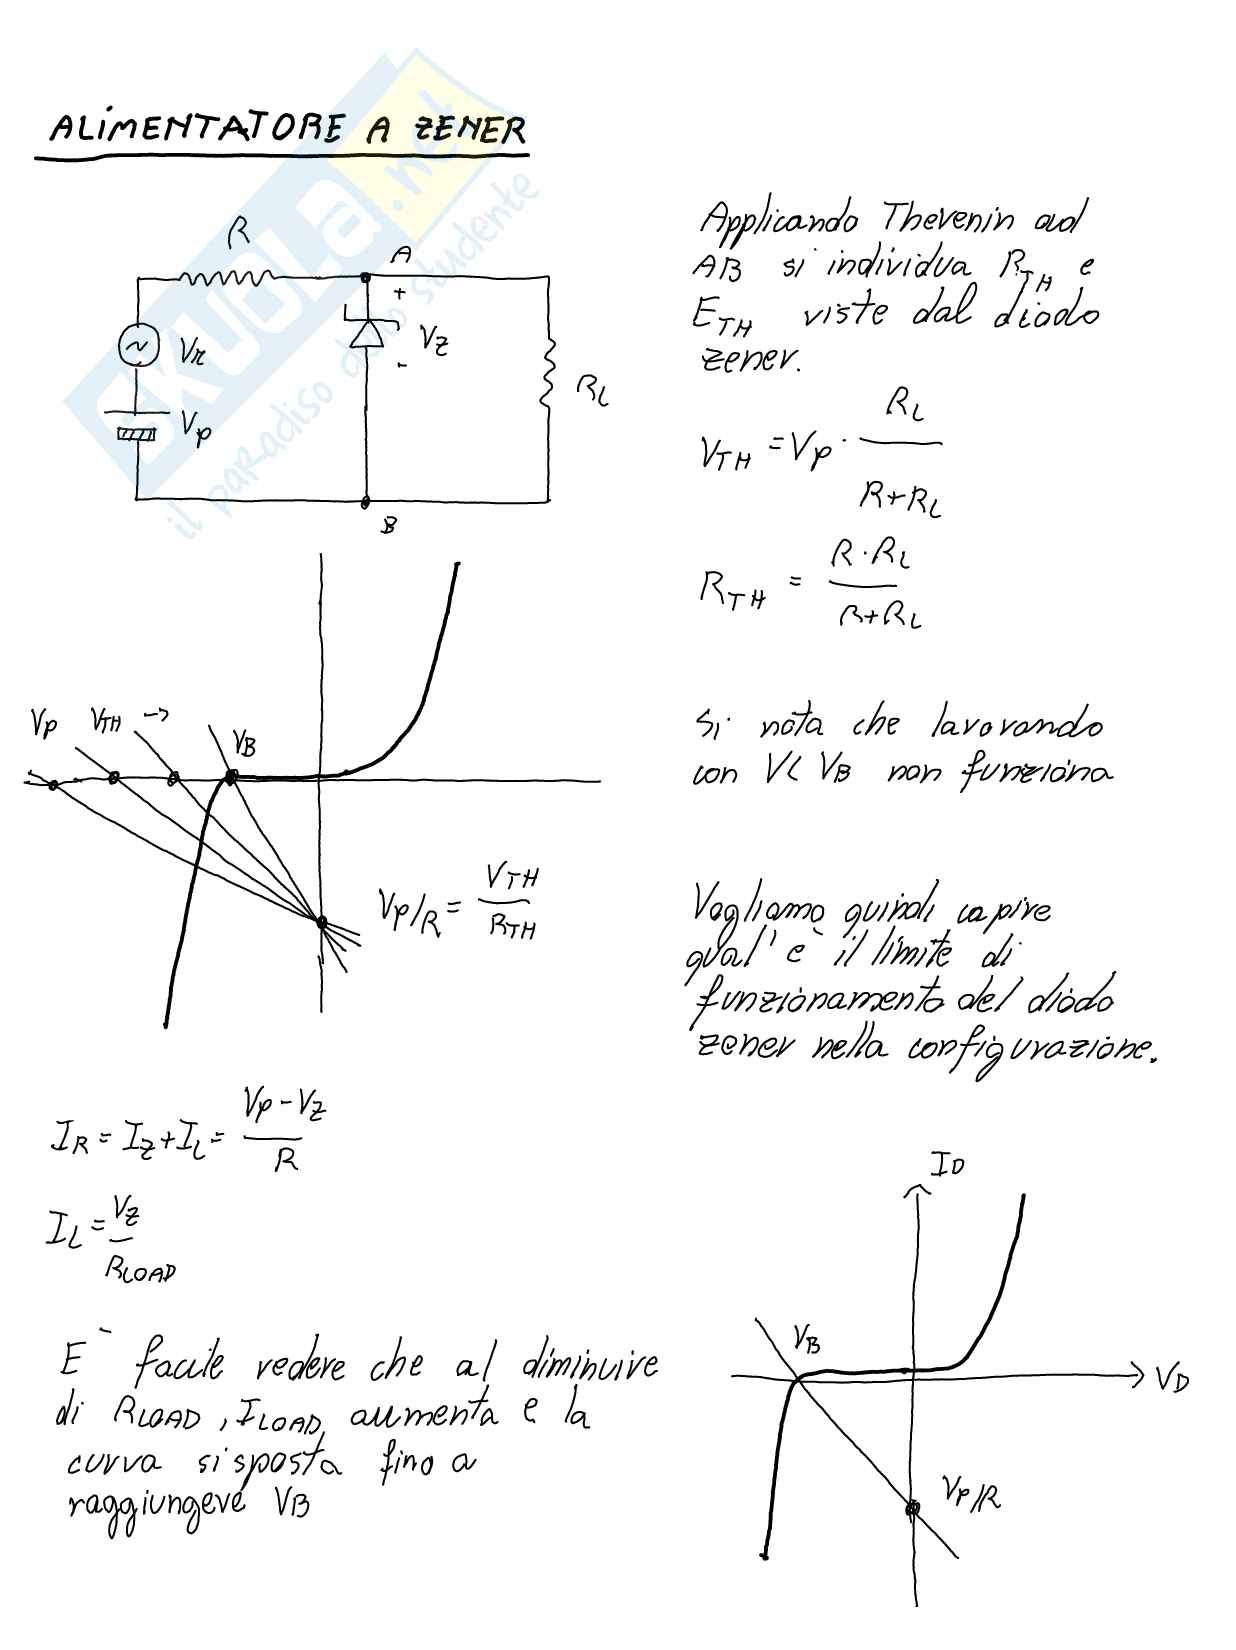 ALIMENTATORE A ZENER
SKUOLA.net
il paradiso dello studente
R
A
+
Vz
-
Vr
Vp
RL
B
Applicando Thevenin ad
AB si individua RTH e
ETH viste dal diodo
zener.
VTH = Vp · RL
R+RL
RTH = R · RL
R+RL
Vp VTH → VB
Vp/R = VTH
RTH
Si nota che lavorando
con V< VB non funziona
Vogliamo quindi capire
qual'è il limite di
funzionamento del diodo
zener nella configurazione.
IR = Iz + IL = Vp - Vz
R
IL = Vz
RLOAD
E' facile vedere che al diminuire
di RLOAD, ILOAD, aumenta e la
curva si sposta fino a
raggiungere VB
ID
VB
VD
Vp/R